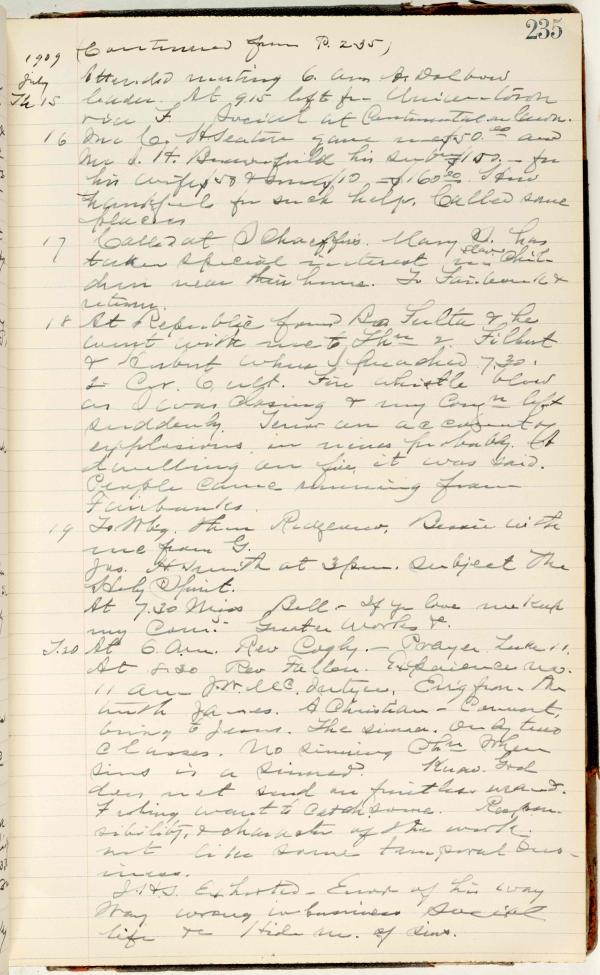 235
1909 (Continued from P. 235)
July Attended meeting 6. am A. Dolbow
Th 15 leader. At 9.15 left for Uniontown
via F. Social at Continental
16 Mr C. H Seaton gave me $50.00 and
Mr I. H. Brownfield his $150. — for
his wife $50 & $10 — $160.00. How
thankful for such help. Called some
places
17 Called at Mary S. has
taken special interest in Slav Chil-
dren near their home. To Fairbank &
return.
18 At Republic found & he
went with me to Thn 2. Filbert
& where I preached 7.30.
2 Cor. 6 Fire whistle blow
as I was closing & my Congn left
suddenly. Terror on account of
explosions in mines probably. A
dwelling on fire, it was said.
People came running from
Fairbanks.
19 To Wbg. then Ridgeview, Bessie with
me from G.
Jas. H Smith at 3 pm. Subject The
Holy Spirit.
At 7.30 Miss Bell — If ye love me keep
my Com. Greater Works &.
T. 20 At 6 Am. Rev — Prayer Luke 11.
At 8.30 Rev Fallon. Experience
11 am J.W. McC. Err from the
truth James. A Christian — Convert,
bring to Jesus. The sinner. On by two
classes. No sinning Chn When
sins is a sinner. Know. God
does not send on fruitless errand.
Fishing want to catch some. Respon-
sibility, & character of the work.
not like some temporal bus-
iness.
J.H.S. Exhorted — Error of his way
Way wrong in business social
life &c Hide m. of sins.